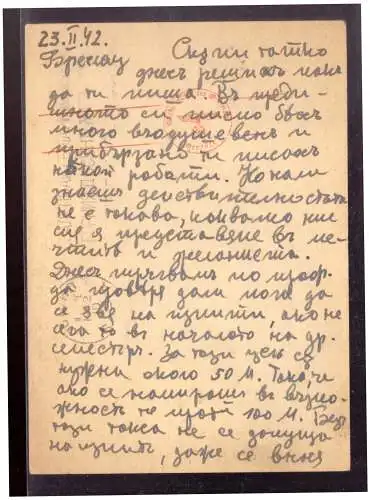 23.II.42.
Бреслау Скъпи татко
днесъ решихъ пакъ
да ти пиша. Въ преди-
шното си писмо бѣхъ
много въодушевенъ и
прибързано ти писахъ
нѣкои работи. Но нали
знаешъ действителностьта
не е такава, каквато ние
си я представяме въ ме-
чтите и желанията.
Днесъ отивамъ по проф.
да говоря дали мога да
се явя на изпити, ако не
сега то въ началото на др.
семестър. За тази цель сѫ
нужни около 50 М. Така, че
ако се намирашъ въ възмо-
жность ти прати 100 М. Безъ
тази такса не се допуща
на изпитъ, даже се внася